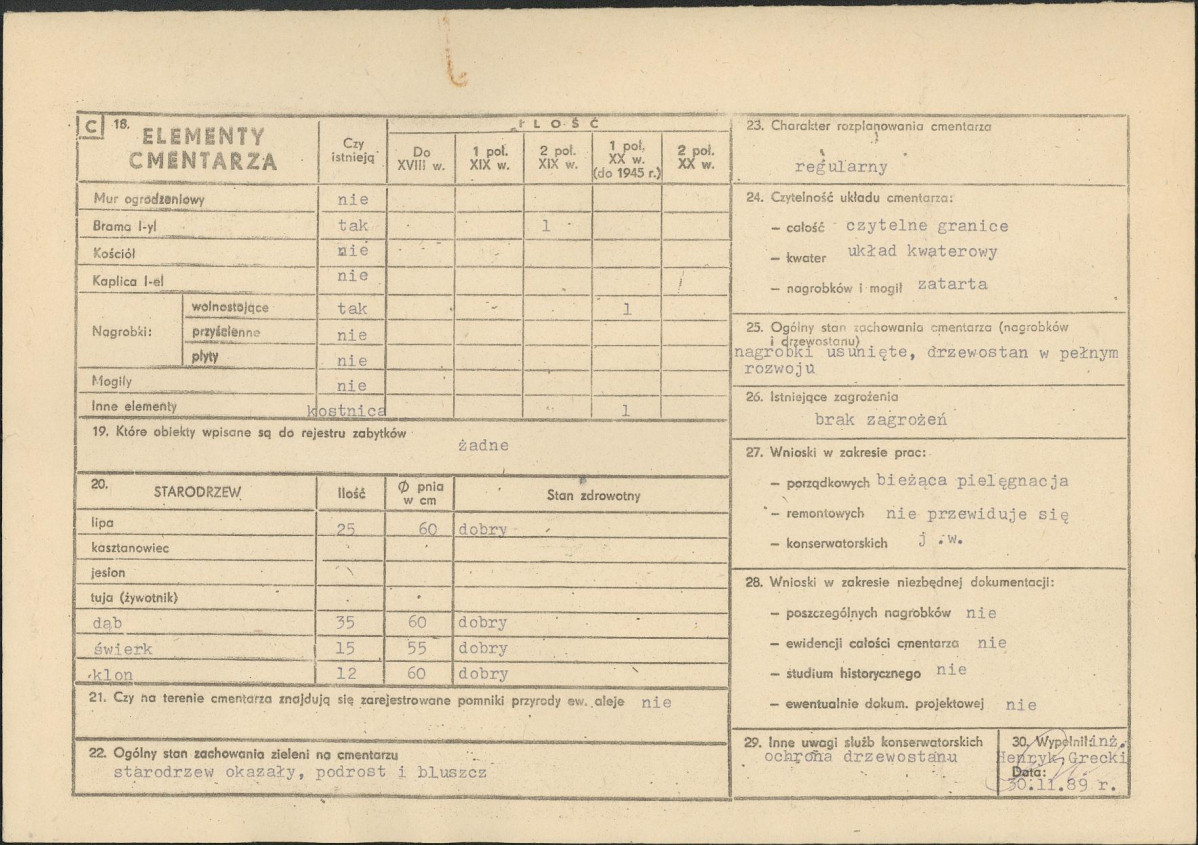 C 18. ELEMENTY CMENTARZA
Czy istnieją
ILOŚĆ
Do XVIII w.
1 poł. XIX w.
2 poł. XIX w.
1 poł. XX w. (do 1945 r.)
2 poł. XX w.
Mur ogrodzeniowy nie
Brama I-yl tak 1
Kościół nie
Kaplica I-el nie
Nagrobki:
wolnostojące tak 1
przyścienne nie
płyty nie
Mogiły nie
Inne elementy kostnica 1
19. Które obiekty wpisane są do rejestru zabytków
żadne
20. STARODRZEW Ilość Ø pnia w cm Stan zdrowotny
lipa 25 60 dobry
kasztanowiec
jesion
tuja (żywotnik)
dąb 35 60 dobry
świerk 15 55 dobry
klon 12 60 dobry
21. Czy na terenie cmentarza znajdują się zarejestrowane pomniki przyrody ew. aleje nie
22. Ogólny stan zachowania zieleni na cmentarzu
starodrzew okazały, podrost i bluszcz
23. Charakter rozplanowania cmentarza
regularny
24. Czytelność układu cmentarza:
— całość czytelne granice
— kwater układ kwaterowy
— nagrobków i mogił zatarta
25. Ogólny stan zachowania cmentarza (nagrobków
i drzewostanu)
nagrobki usunięte, drzewostan w pełnym
rozwoju
26. Istniejące zagrożenia
brak zagrożeń
27. Wnioski w zakresie prac:
— porządkowych bieżąca pielęgnacja
— remontowych nie przewiduje się
— konserwatorskich j .w.
28. Wnioski w zakresie niezbędnej dokumentacji:
— poszczególnych nagrobków nie
— ewidencji całości cmentarza nie
— studium historycznego nie
— ewentualnie dokum. projektowej nie
29. Inne uwagi służb konserwatorskich
ochrona drzewostanu
30. Wypełnił: inż.
Henryk Grecki
Data:
30.11.89 r.